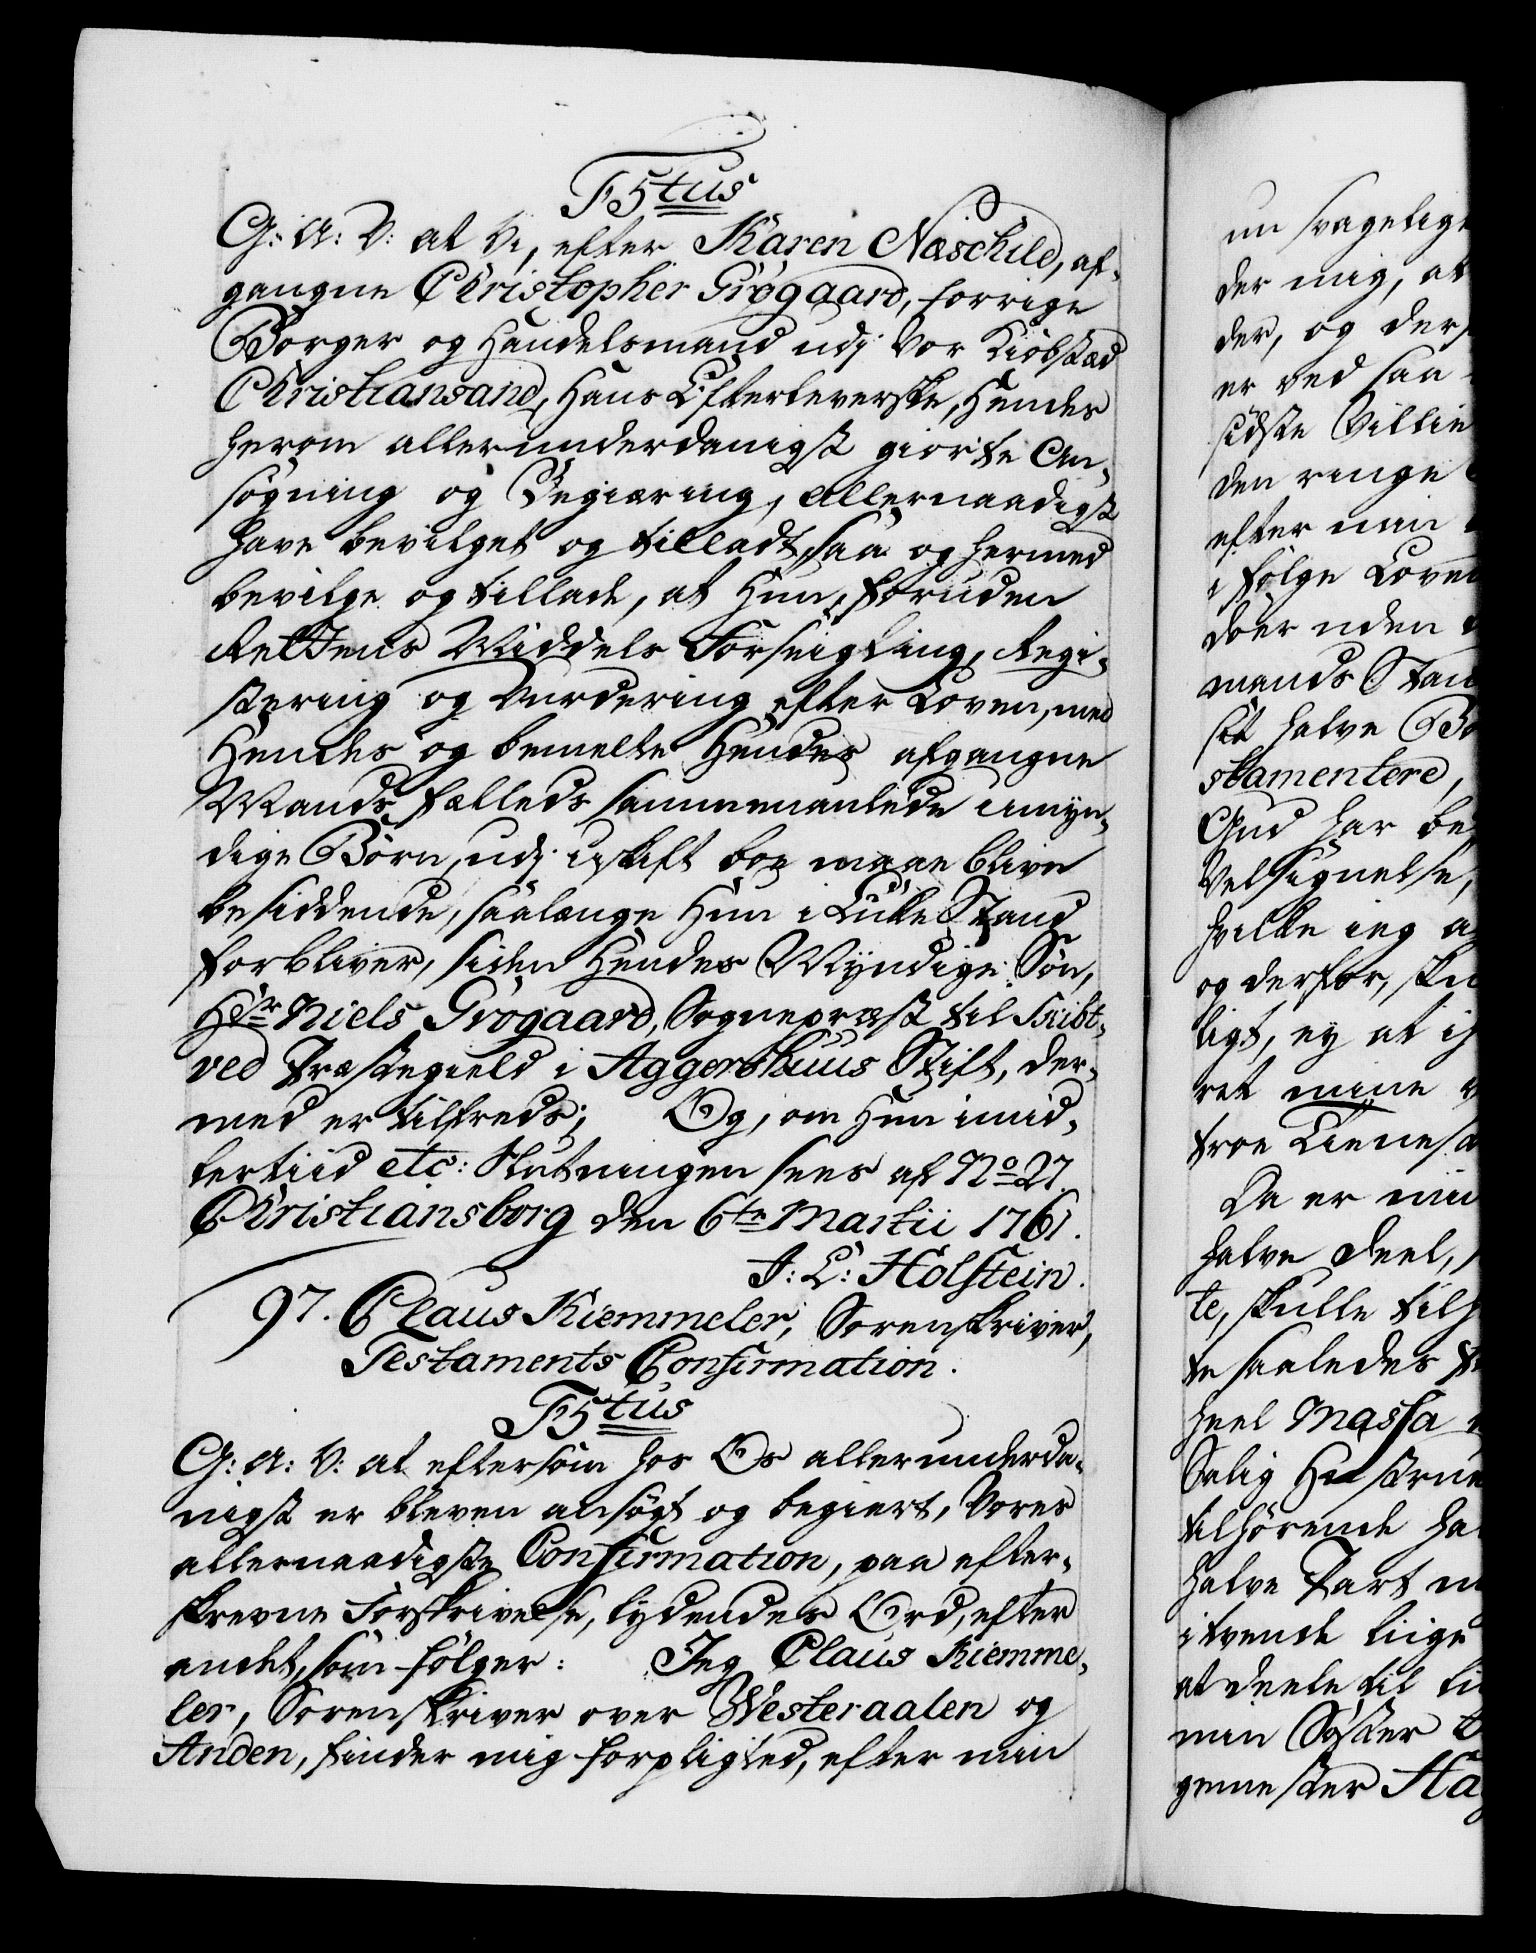 F5tus
G: A: V: at Vi, efter Karen Næschild, af-
gangne Christopher Grøgaard, forrige
Borger og Handelsmand udj Vor Kiøbstæd
Christiansand, Hans Efterleverske, Hendes
herom allerunderdanigst giorte An-
søgning og Begiæring, allernaadigst
have bevilget og tilladt, saa og hermed
bevilge og tillade, at Hun, foruden
Rettens Middels Forseigling, Regi-
stering og Vurdering efter Loven, med
Hendes og bemelte Hendes afgangne
Mands fælleds sammenavlede umyn-
dige Børn, udj uskift boe maae blive
besiddende, saalænge Hun i Enke Stand
forbliver, siden Hendes Myndige Søn,
Hr Niels Grøgaard, Sognepræst til Skibt-
ved Præstegield i Aggershuus Stift, der-
med er tilfreds; Og, om Hun imid-
lertiid etc: Slutningen sees af No 27.
Christiansborg den 6te Martii 1761.
J: L: Holstein.
97. Claus Kiemmeler, Sorenskriver,
Testaments Confirmation.
F5tus
G: A: V: at eftersom hos Os allerunderda-
nigst er bleven ansøgt og begiert, Vores
allernaadigste Confirmation, paa efter-
skrevne Forskrivelse, lydendes Ord, efter
andet, som følger: Jeg Claus Kiemme-
ler, Sorenskriver over Westeraalen og
Anden, finder mig forpligted, efter min
un svagelige
der mig, at
der, og der
er ved saa
sidste Villie
den ringe
efter min
i følge Loven
døer uden
mands Stan
sit halve Bo
stamentere,
Gud har be
Velsignelse,
hvilke ieg a
og derfor, sku
ligt, ey at i
ret mine
troe Tienes
Da er min
halve Deel,
te, skulle tilh
te saaledes f
heel Massa
Salig Hustrue
tilhørende ha
halve Part
i tvende liige
at deele til li
min Søster
gemester Ha